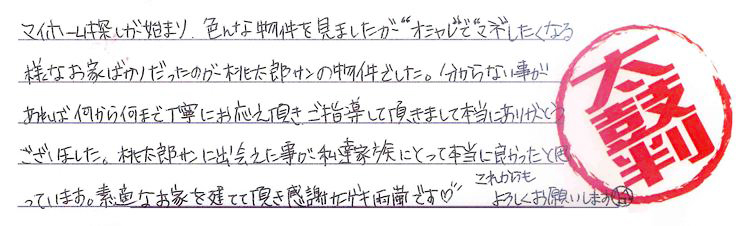 マイホーム探しが始まり、色んな物件を見ましたが“オシャレ”で“マネ”したくなる
様なお家ばかりだったのが桃太郎サンの物件でした。分からない事が
あれば何から何まで丁寧にお応え頂き、ご指導して頂きまして本当にありがとう
ございました。桃太郎サンに出会えた事が私達家族にとって本当に良かったと思
っています。素適なお家を建てて頂き感謝カンゲキ雨嵐です♡
これからも
よろしくお願いします
太鼓判